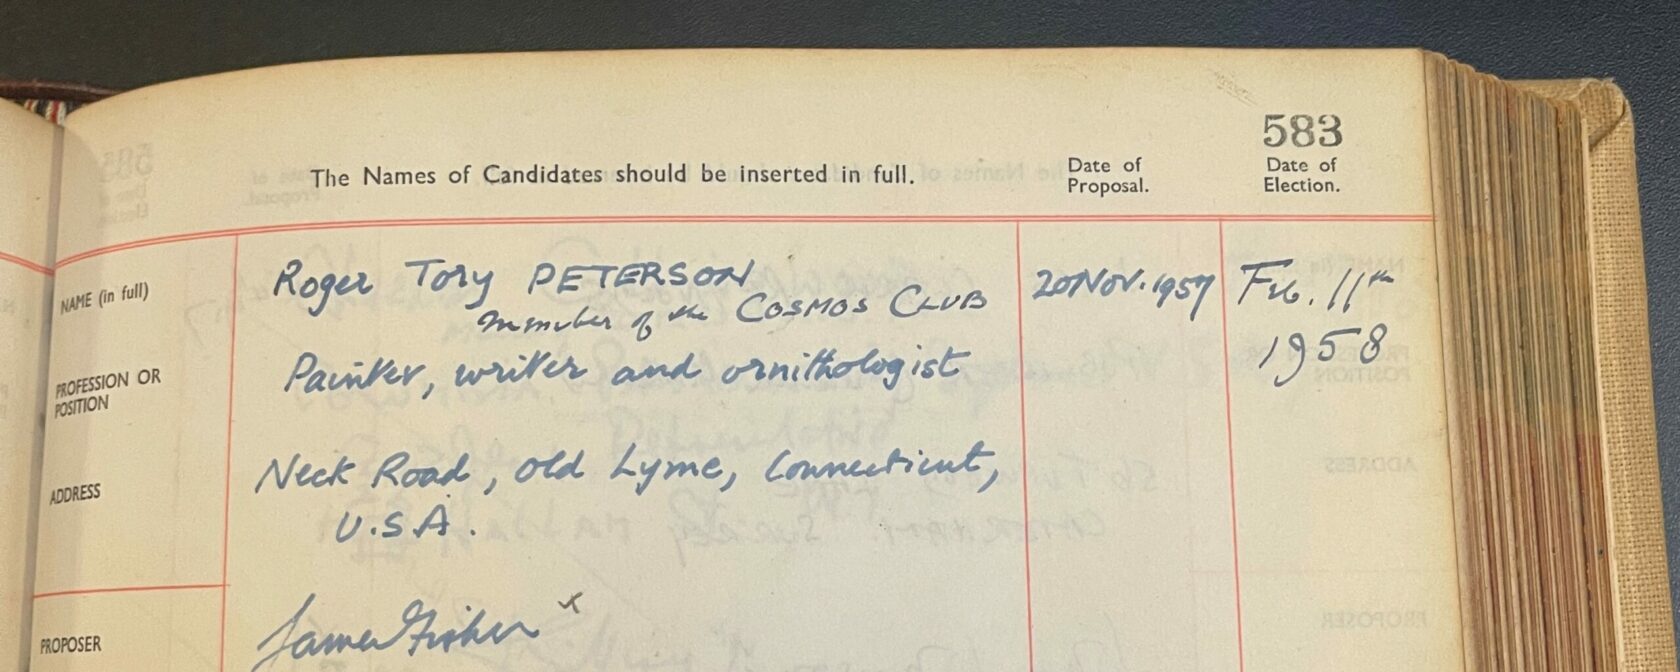 583
The Names of Candidates should be inserted in full.
Date of
Proposal.
Date of
Election.
NAME (in full)
Roger Tory PETERSON
member of the COSMOS CLUB
20 Nov. 1957
Feb. 11th
1958
PROFESSION OR
POSITION
Painter, writer and ornithologist
ADDRESS
Neck Road, Old Lyme, Connecticut,
U.S.A.
PROPOSER
James Fisher x